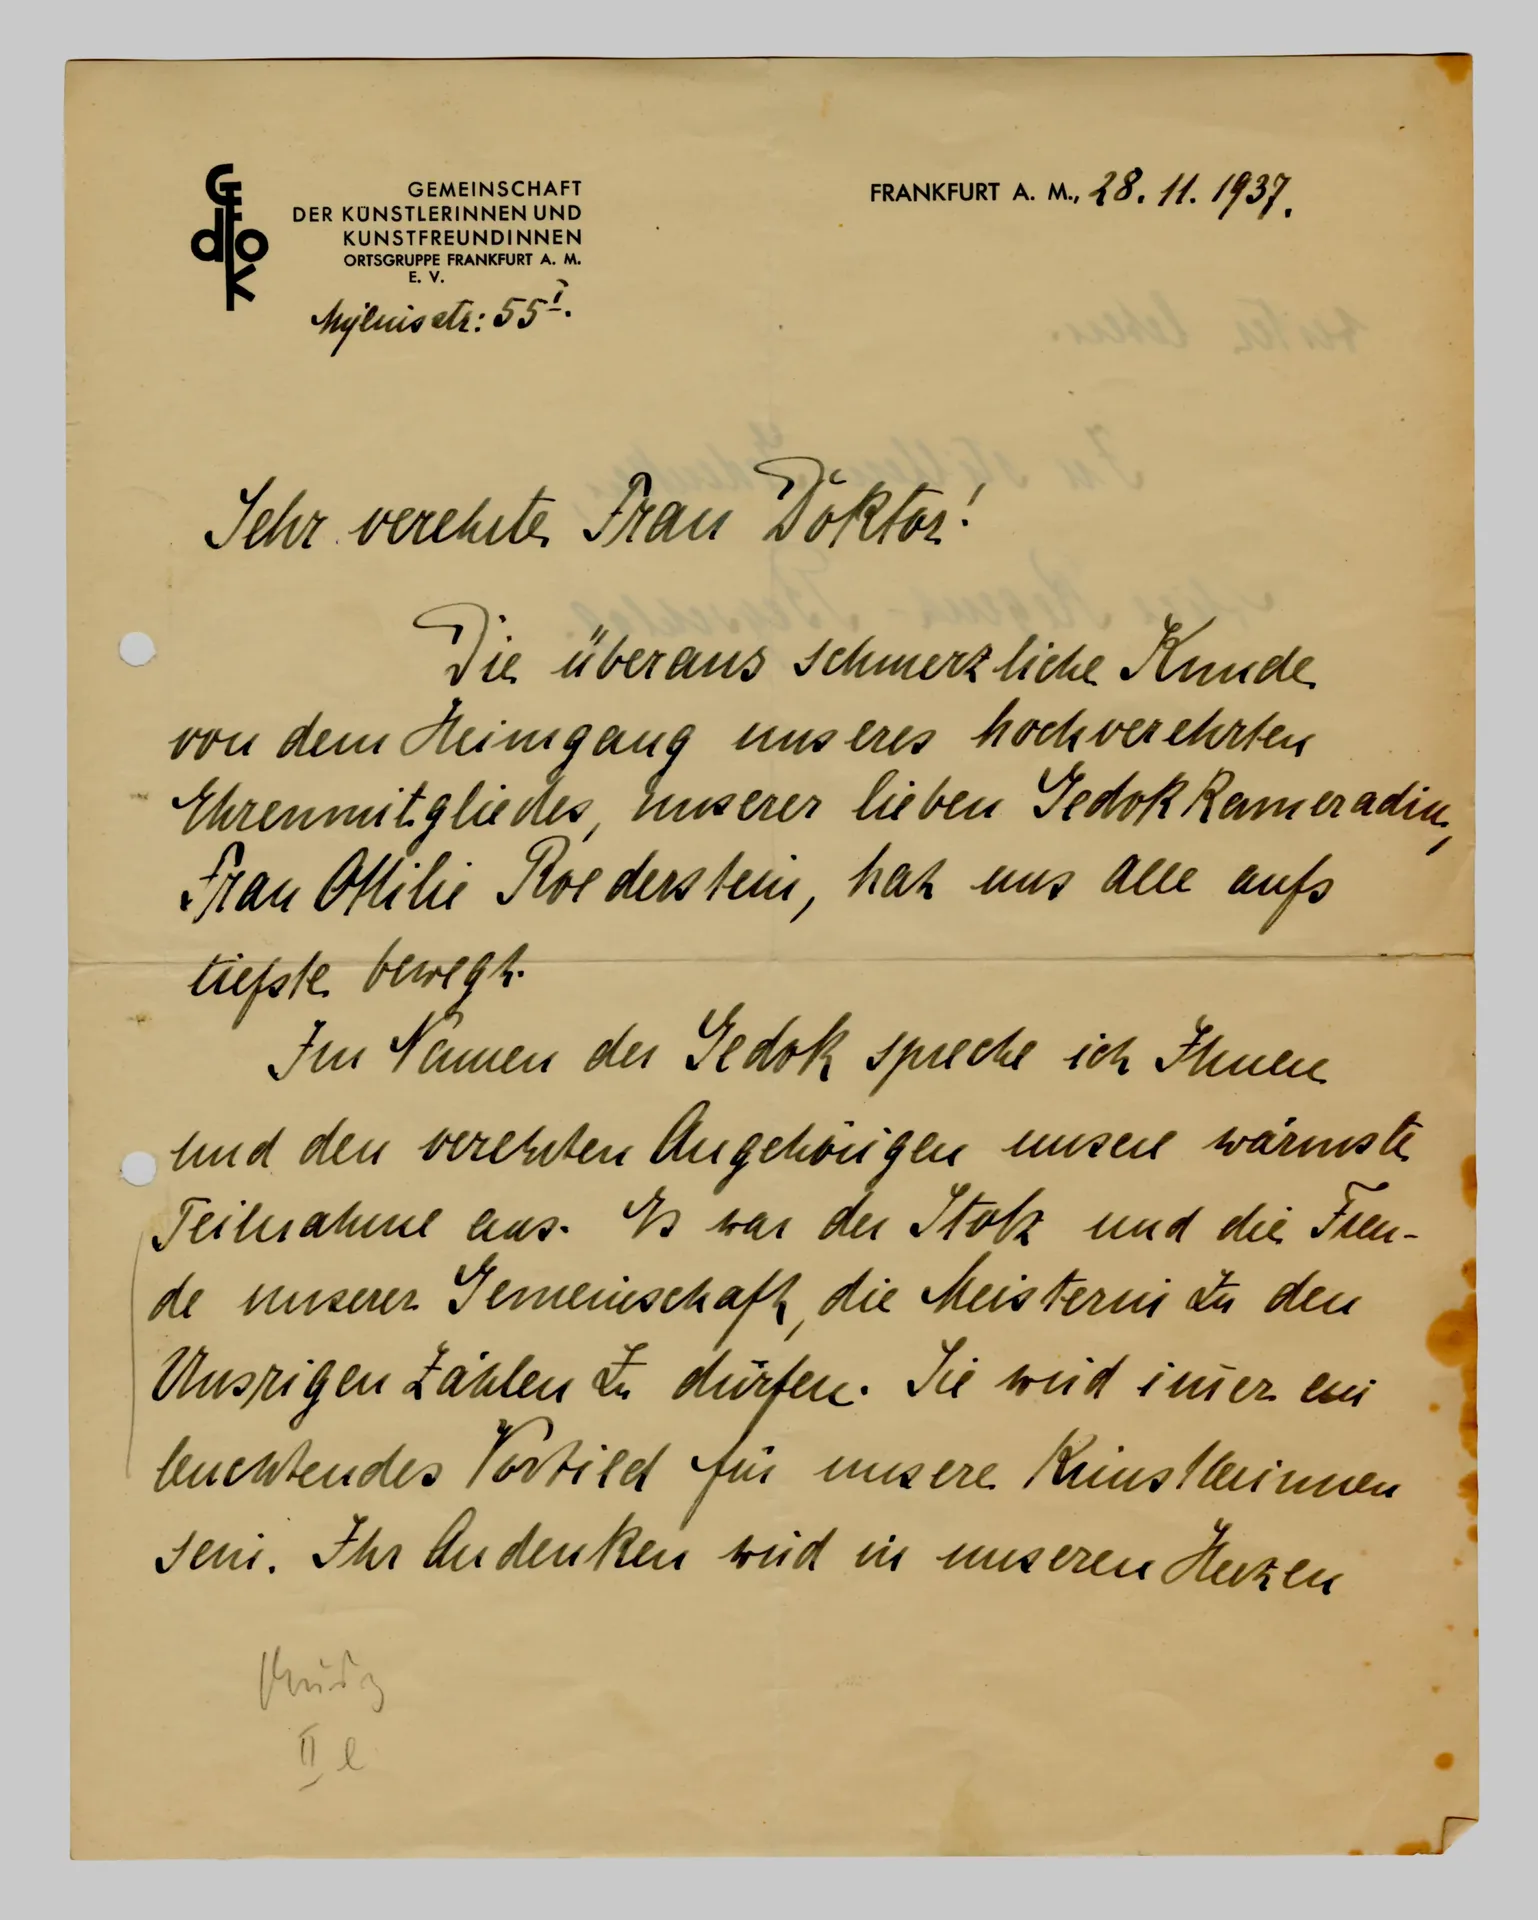 GEDOK
GEMEINSCHAFT
DER KÜNSTLERINNEN UND
KUNSTFREUNDINNEN
ORTSGRUPPE FRANKFURT A. M.
E. V.
Myliusstr: 55 I.
FRANKFURT A. M., 28. 11. 1937.
Sehr verehrte Frau Doktor!
Die überaus schmerzliche Kunde
von dem Heimgang unseres hochverehrten
Ehrenmitgliedes, unserer lieben Gedokkameradin,
Frau Ottilie Roederstein, hat uns alle aufs
tiefste bewegt.
Im Namen der Gedok spreche ich Ihnen
und den verehrten Angehörigen unsere wärmste
Teilnahme aus. Es war der Stolz und die Freu-
de unserer Gemeinschaft, die Meisterin zu den
Unsrigen zählen zu dürfen. Sie wird im̅er ein
leuchtendes Vorbild für unsere Künstlerinnen
sein. Ihr Andenken wird in unseren Herzen
II e